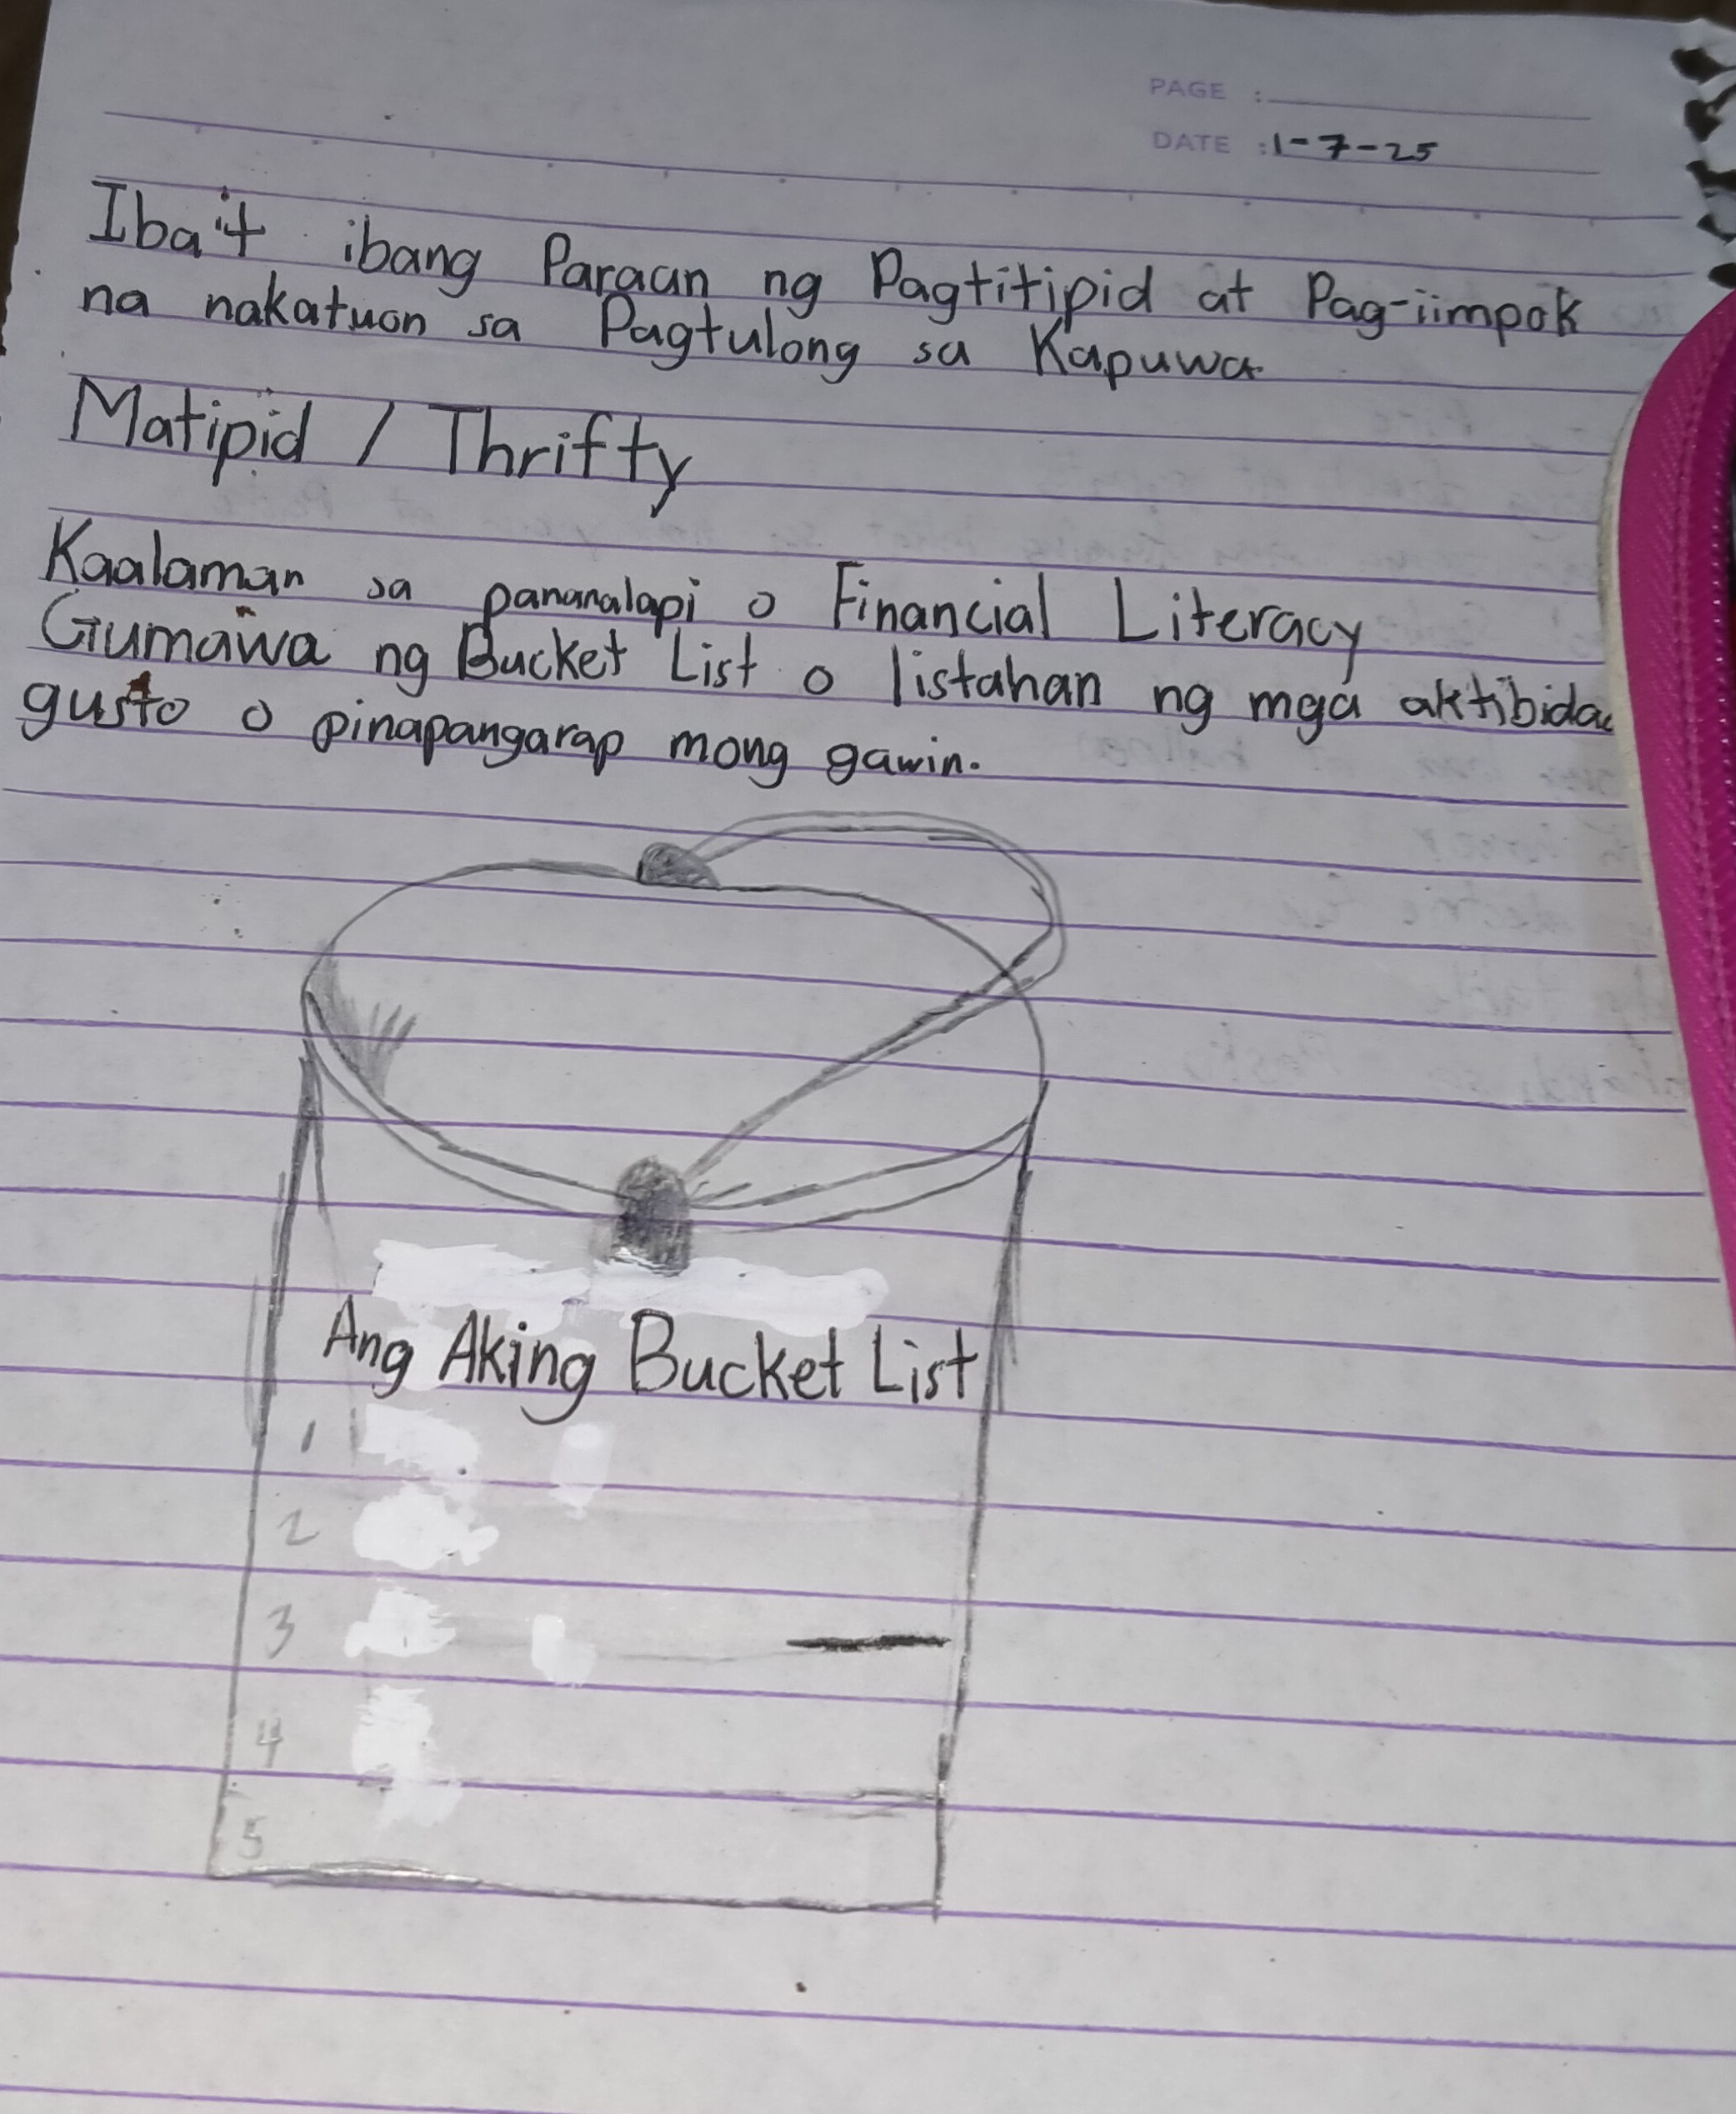 PAGE :
DATE : 1-7-25
Iba't ibang Paraan ng Pagtitipid at Pag-iimpok
na nakatuon sa Pagtulong sa Kapuwa
Matipid / Thrifty
Kaalaman sa pananalapi o Financial Literacy
Gumawa ng Bucket List o listahan ng mga aktibidad
gusto o pinapangarap mong gawin.
Ang Aking Bucket List
1
2
3
4
5